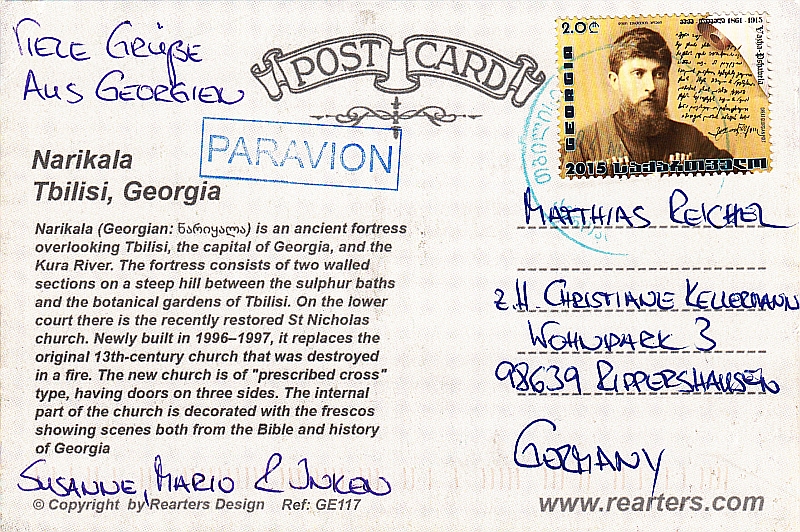 VIELE GRÜßE
AUS GEORGIEN
POST CARD
PARAVION
2.0 ₾
1861 - 1915
GEORGIA
2015 საქართველო
Narikala
Tbilisi, Georgia
Narikala (Georgian: ნარიყალა) is an ancient fortress
overlooking Tbilisi, the capital of Georgia, and the
Kura River. The fortress consists of two walled
sections on a steep hill between the sulphur baths
and the botanical gardens of Tbilisi. On the lower
court there is the recently restored St Nicholas
church. Newly built in 1996–1997, it replaces the
original 13th-century church that was destroyed
in a fire. The new church is of "prescribed cross"
type, having doors on three sides. The internal
part of the church is decorated with the frescos
showing scenes both from the Bible and history
of Georgia
SUSANNE, MARIO & INKEN
© Copyright by Rearters Design Ref: GE117
MATTHIAS REICHEL
z.H. CHRISTIANE KELLERMANN
WOHNPARK 3
98639 RIPPERSHAUSEN
GERMANY
www.rearters.com